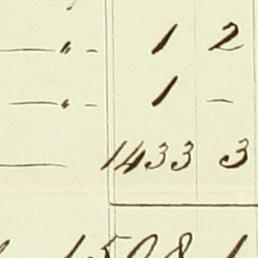 — " - 1 2
— " - 1 —
— 1433 3
1508 1